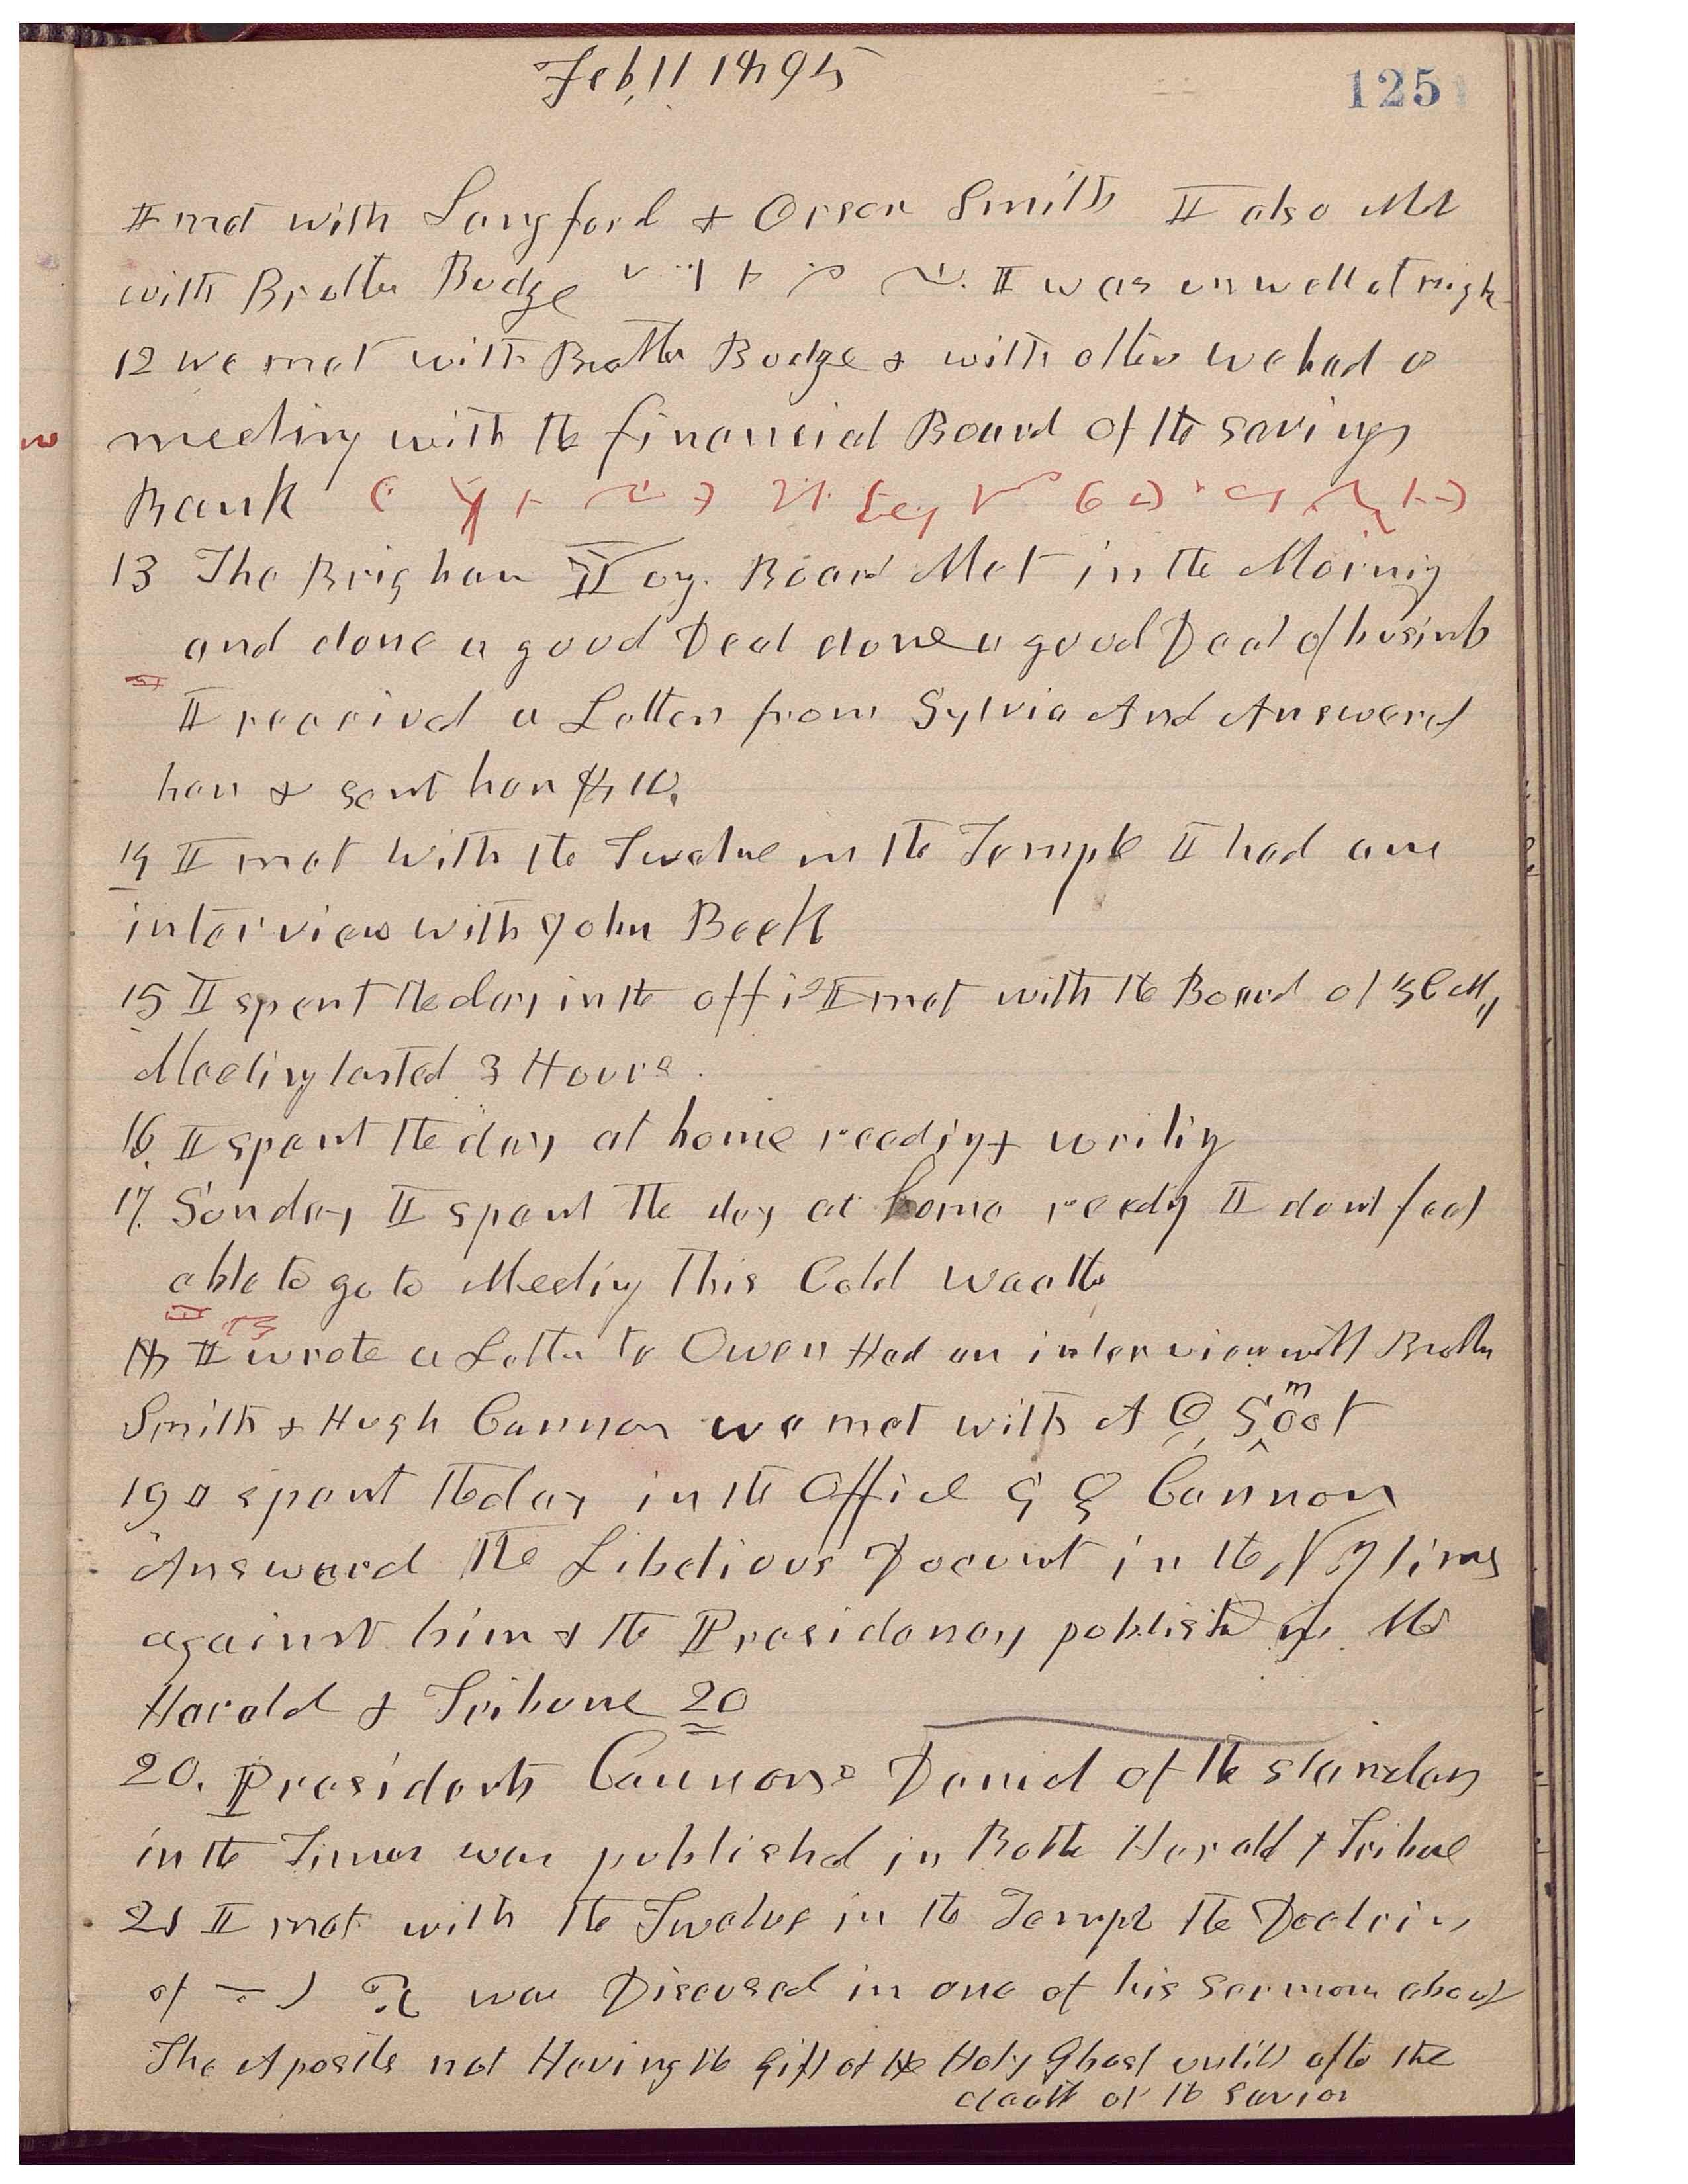 Feb, 11 1895
125
I met with Langford & Orson Smith I also Met
with Brother Budge I was unwell at nigh
12 we met with Brother Budge & with others we had a
meeting with the financial Board of the savings
Bank
13 The Brigham Board Met in the Morning
and done a good Deal done a good Deal of
I received a Letter from Sylvia And Answerd
her & sent her $10.
14 I met with the Twelve in the Temple I had an
interview with John Beck
15 I spent the day in the office I met with the Board of Z C M I
Meeting lasted 3 Hours.
16. I spent the day at home reading & writing
17. Sunday I spent the day at home I dont feel
able to go to Meeting This Cold weather
18 I wrote a Letter to Owen Had an interview with Brother
Smith & Hugh Cannon we met with A O Smoot
19 I spent the day in the Office G Q Cannon
Answerd the Libelious in the N Y times
against him & the Presidency publishd in the
Herald & Tribune 20
20. Presidents Cannons Denial of the slanders
in the Times was published in Both Herald & Tribune
21 I met with the Twelve in the Temple the Doctrin
of was Discussed in one of his sermons about
The Apostles not Having the gift of the Holy Ghost untill after the
death of the savior